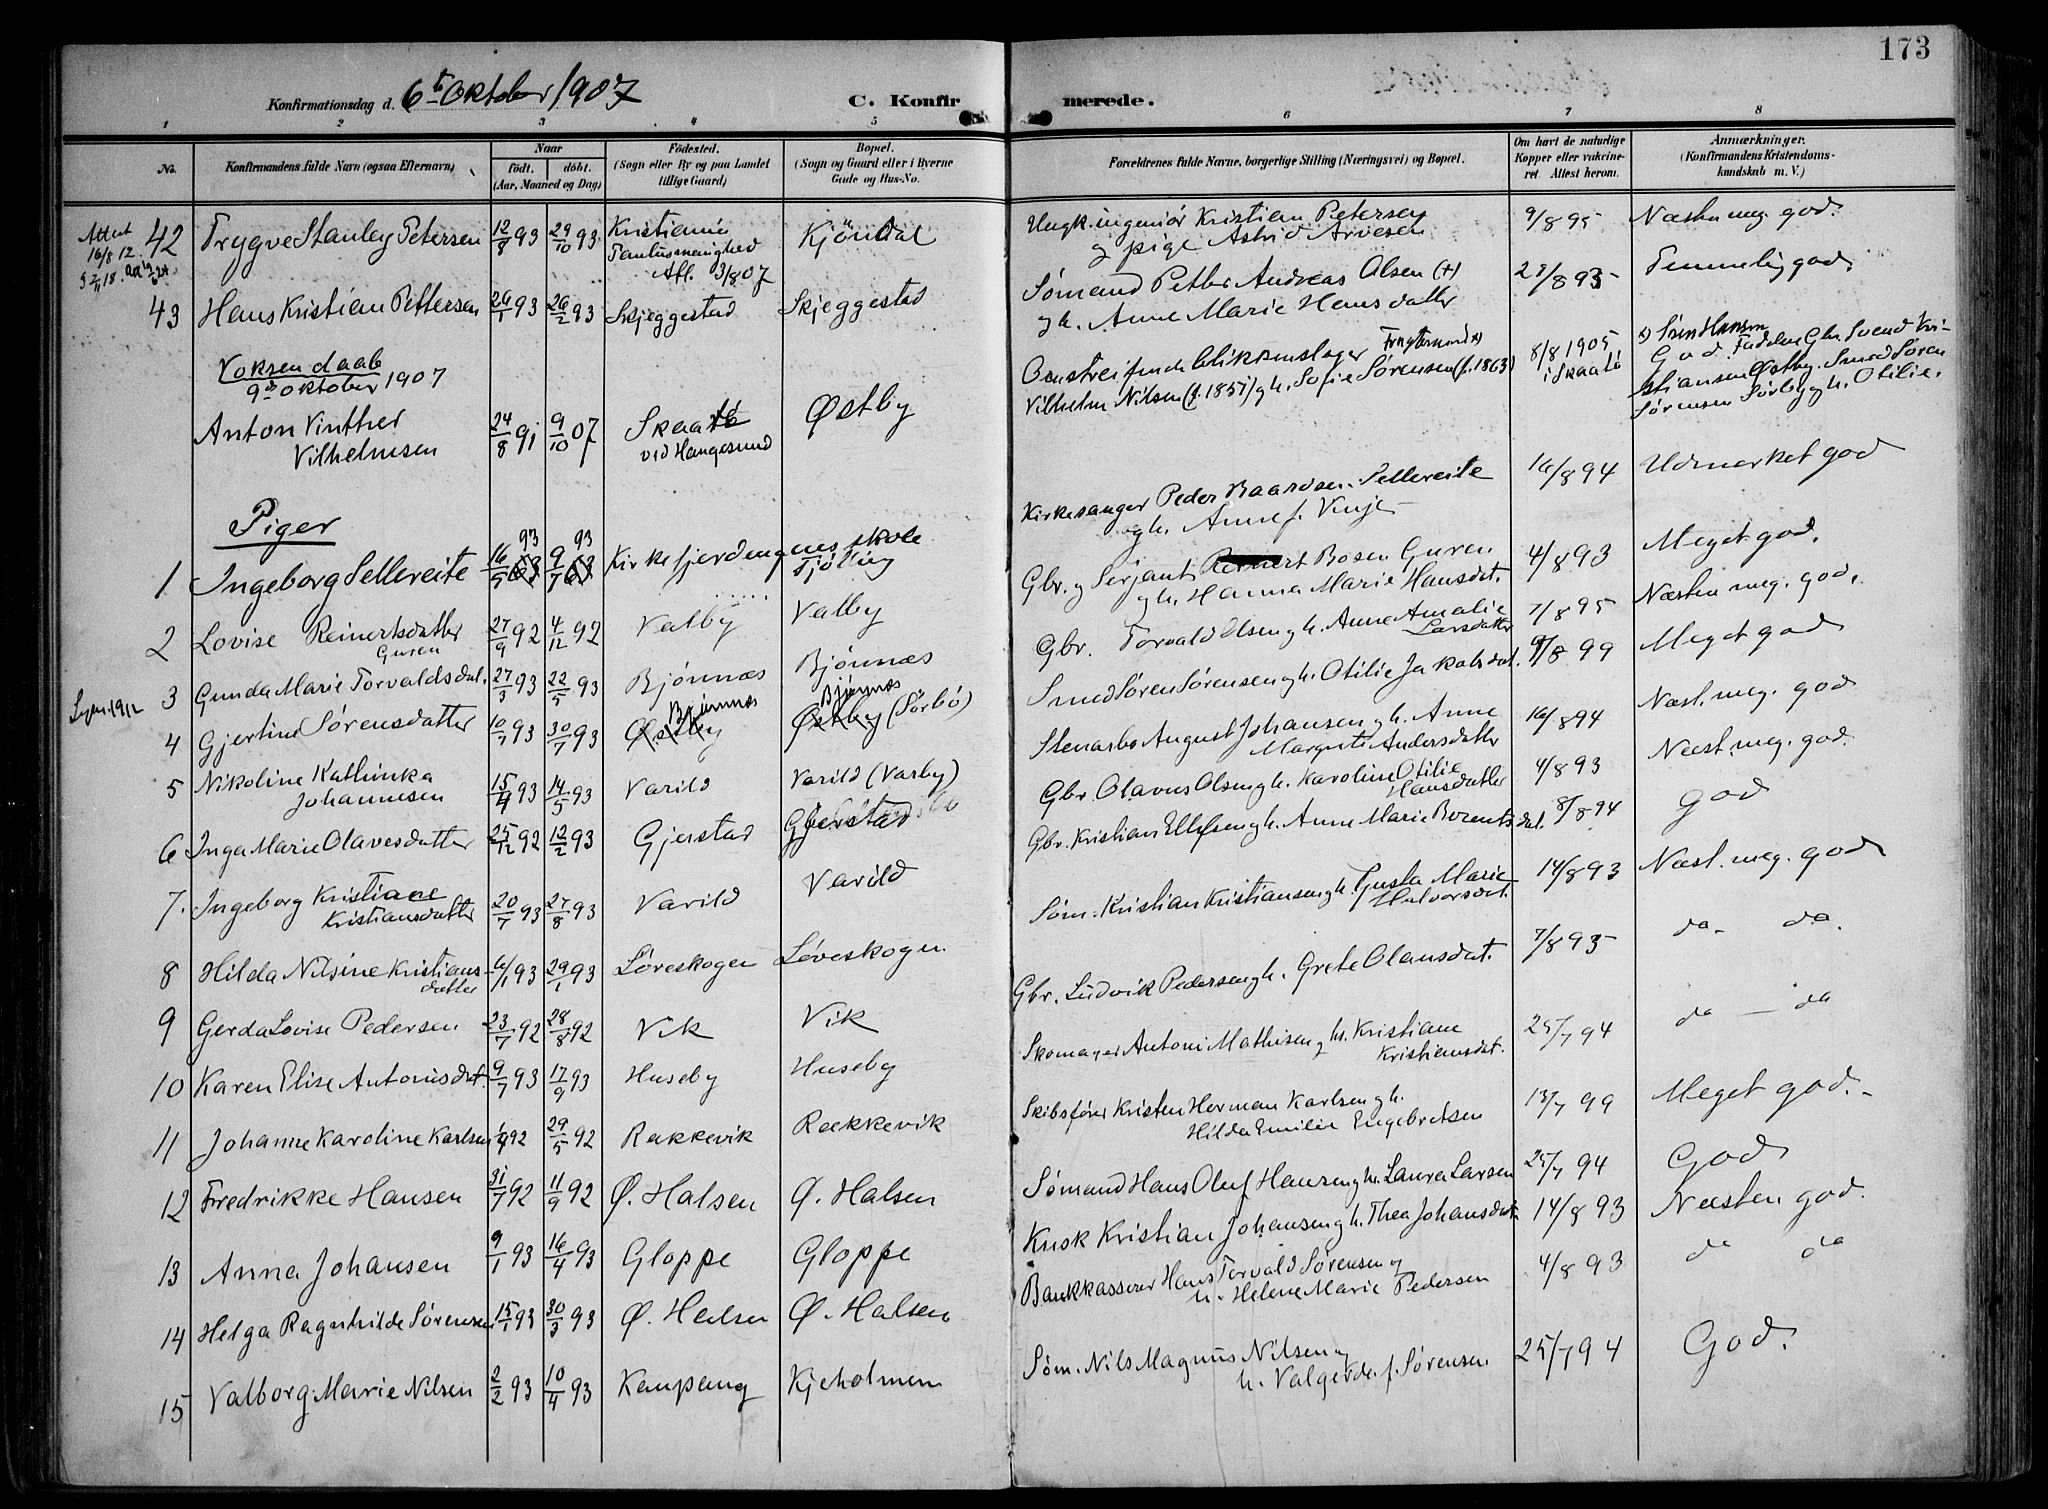 173
Konfirmationsdag d. 6t Oktober 1907
C. Konfirmerede.
1 2 3 4 5 6 7 8
No.
Konfirmandens fulde Navn (ogsaa Efternavn)
Naar
födt. döbt.
(Aar, Maaned og Dag)
Födested.
(Sogn eller By og paa Landet
tillige Gaard)
Bopæl.
(Sogn og Gaard eller i Byerne
Gade og Hus-No.
Forældrenes fulde Navne, borgerlige Stilling (Næringsvei) og Bopæl.
Om havt de naturlige
Kopper eller vakcine-
ret. Attest herom.
Anmærkninger.
(Konfirmandens Kristendoms-
kundskab m. V.)
Attest
16/8 12.
42 Trygve Stanley Petersen 12/8 93 29/10 93 Kristiania Kjöndal
Paulusmenighed
Att. 3/8 07
Ungk. ingeniör Kristian Petersen 9/8 95 Næsten meg. god.
og pige Astrid Arvesen
43 Hans Kristian Pettersen 26/1 93 26/2 93 Skjeggestad Skjeggestad
Sømand Petter Andreas Olsen (+) 27/8 93 Temmelig god.
gh. Anne Marie Hansdatter
Voksendaab
9de Oktober 1907
Anton Vinther 24/8 91 9/10 07 Skaatö Østby
Vilhelmsen vid Haugesund
Omstreifende blikkenslager
Vilhelm Nilsen (f. 1857) gh. Sofie Sørensen (f. 1863) 8/8 1905
i Skaatö
x) Sven Hansen
God. Faddere Gbr. Svend Kri-
stiansen Østby. Smed Søren
Sørensen Sørby gh. Otilie.
Piger
1 Ingeborg Sellereite 16/5 93 9/7 93 Kirkefjerdingens skole
Tjölling
Kirkesanger Peder Baardsen Sellereite 16/8 94 Udmerket god
gh. Anne f. Vinje
2 Lovise Reinertsdatter 27/9 92 4/12 92 Valby Valby
Guren
Gbr. og Serjant Bosen Guren 4/8 93 Meget god.
gh. Hanna Marie Hansdat.
3 Gunda Marie Torvaldsdat. 27/3 93 22/5 93 Bjönnæs Bjönnæs
Gbr. Torvald Olsen gh. Anne Amalie 7/8 95 Næsten meg. god.
Larsdatter
4 Gjertine Sørensdatter 10/7 93 30/7 93 Østby Bjönnæs Østby (Sörbö) Bjönnæs
Smed Søren Sørensen gh. Otilie Jakobsdat. 9/8 99 Meget god
5 Nikoline Kathinka 15/4 93 14/5 93 Varild Varild (Varby)
Johannesen
Stenarb. August Johansen gh. Anne 16/8 94 Næst. meg. god
Margrete Andersdatter
6 Inga Marie Olavesdatter 25/12 92 12/2 93 Gjerstad Gjerstad
Gbr. Olavus Olsen gh. Karoline Otilie 4/8 93 Næst. meg. god.
Hansdatter
7. Ingeborg Kristiane 20/7 93 27/8 93 Varild Varild
Kristiansdatter
Gbr. Kristian Ellefsen gh. Anne Marie Berentsdat. 8/8 94 god
8 Hilda Nilsine Kristians- 6/1 93 29/1 93 Löveskogen Löveskogen
datter
Søm. Kristian Kristiansen gh. Gusta Marie 14/8 93 Næst. meg. god
Halvorsdat.
9 Gerda Lovise Pedersen 23/7 92 28/8 92 Vik Vik
Gbr. Ludvik Pedersen gh. Grete Olausdat. 7/8 93 da - da.
10 Karen Elise Antonisdat. 9/7 93 17/9 93 Huseby Huseby
Skomager Antoni Mathisen gh. Kristiane 25/7 94 da - da
Kristiansdat.
11 Johanne Karoline Karlsen 92 29/5 92 Rakkevik Rækkevik
Skibsfører Kristen Herman Karlsen gh. 13/7 99 Meget god.
Hilda Emilie Engebretsen
12 Fredrikke Hansen 31/7 92 11/9 92 Ø. Halsen Ø. Halsen
Sømand Hans Oluf Hansen gh. Laura Larsen 25/7 94 God
13 Anna Johansen 9/1 93 16/4 93 Gloppe Gloppe
Kusk Kristian Johansen gh. Thea Johansdat. 14/8 93 Næsten god.
14 Helga Ragnhilde Sørensen 15/1 93 30/3 93 Ø. Halsen Ø. Halsen
Bankkasserer Hans Torvald Sørensen og 4/8 93 da da
h. Helene Marie Pedersen
15 Valborg Marie Nilsen 2/2 93 10/4 93 Kaupang Kjeholmen
Søm. Nils Magnus Nilsen og 25/7 94 God.
h. Valgerda f. Sørensen